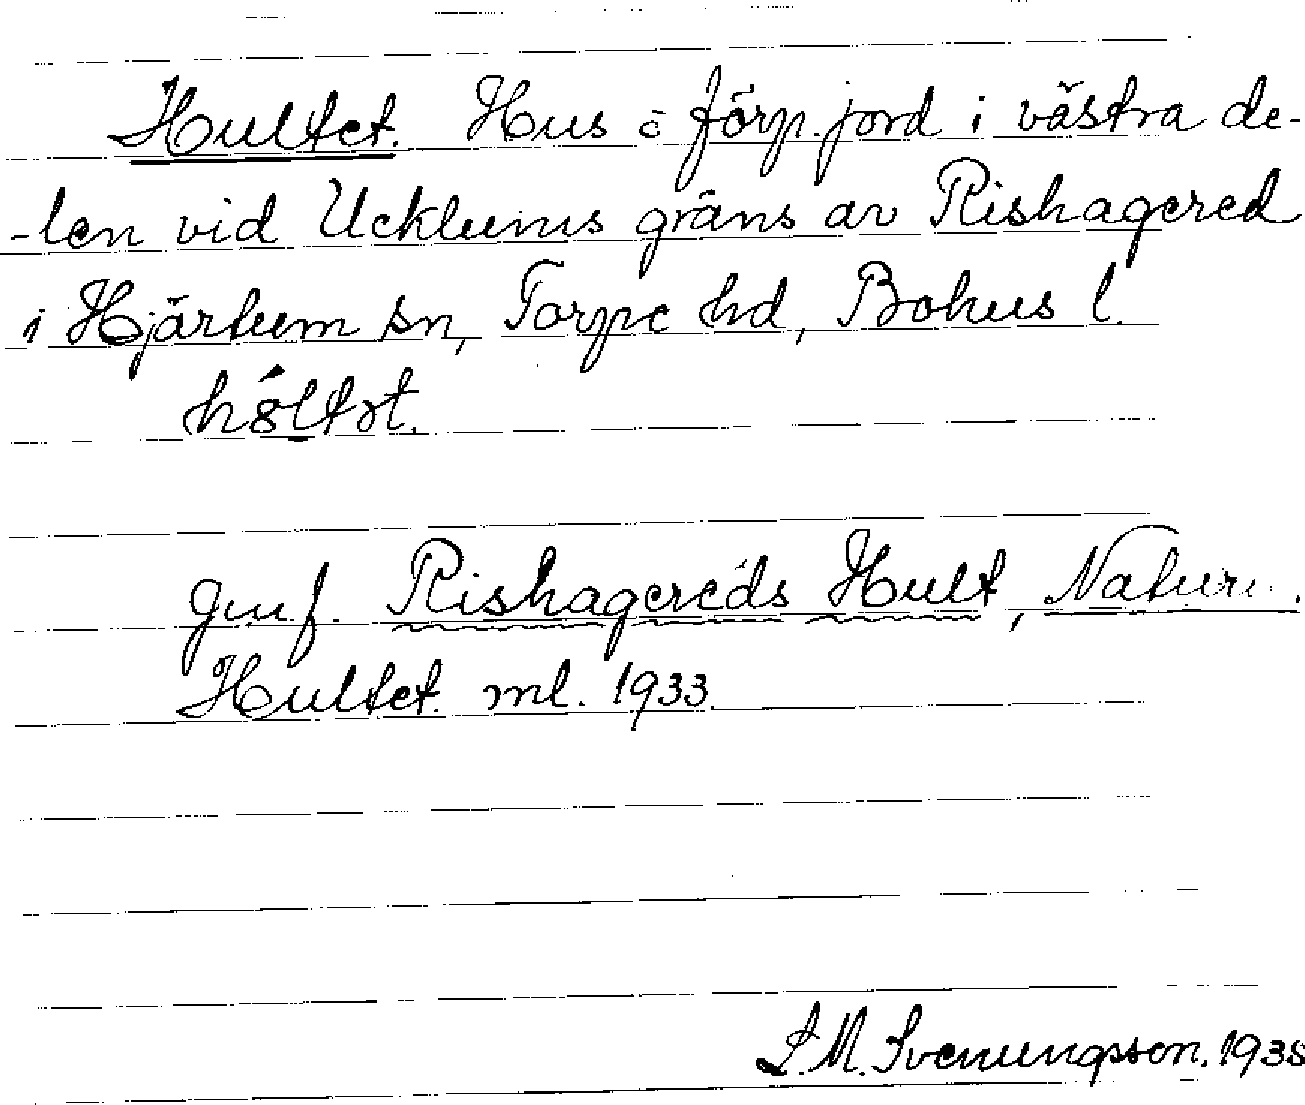 Hultet. Hus å förp. jord i västra de-
-len vid Ucklums gräns av Rishagered
i Hjärtum sn, Torpe hd, Bohus l.
Rishagereds Hult,
Hultet. ml. 1933
L.M. Svenungsson. 1938